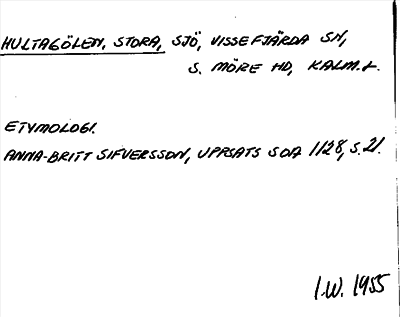 HULTAGÖLEN, STORA, SJÖ, VISSEFJÄRDA SN,
S. MÖRE HD, KALM. L.
ETYMOLOGI.
ANNA-BRITT SIFVERSSON, UPPSATS SOA 1128, S. 21.
I.W. 1955